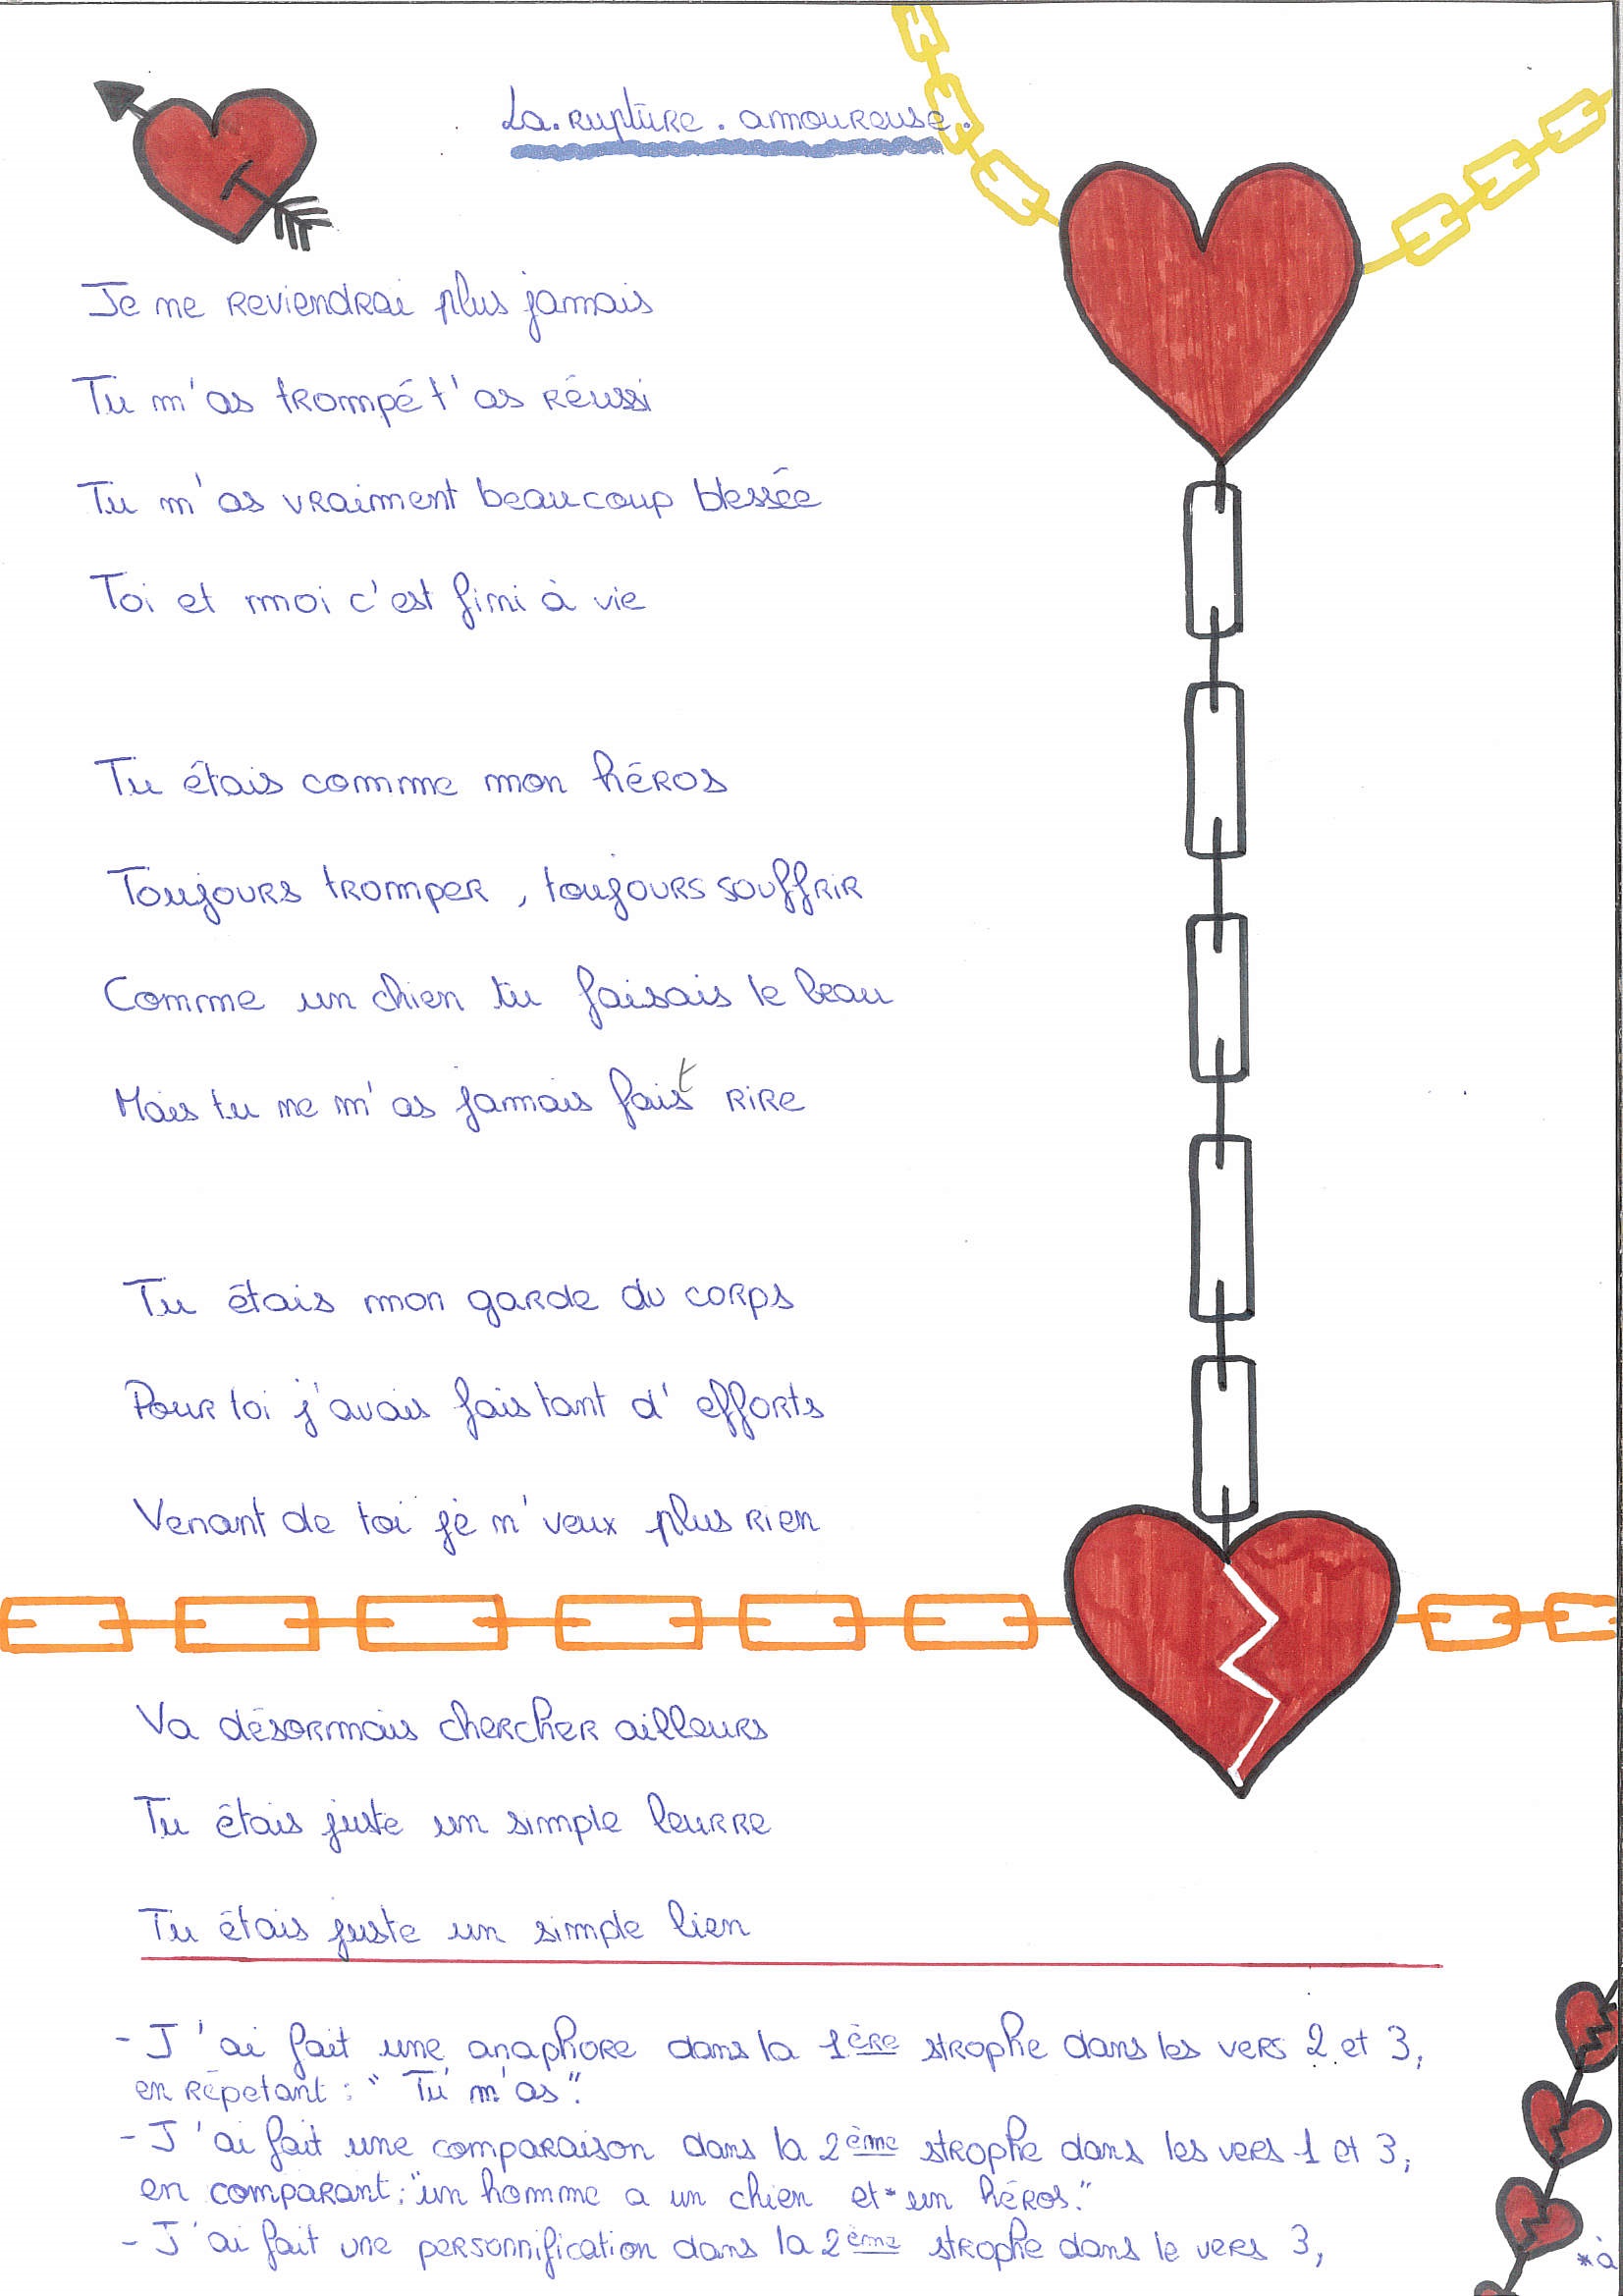 La rupture amoureuse.
Je ne reviendrai plus jamais
Tu m'as trompé t'as réussi
Tu m'as vraiment beaucoup blessée
Toi et moi c'est fini à vie
Tu étais comme mon héros
Toujours tromper, toujours souffrir
Comme un chien tu faisais le beau
Mais tu ne m'as jamais fait rire
Tu étais mon garde du corps
Pour toi j'avais fais tant d'efforts
Venant de toi je n'veux plus rien
Va désormais chercher ailleurs
Tu étais juste un simple leurre
Tu étais juste un simple lien
- J'ai fait une anaphore dans la 1ère strophe dans les vers 2 et 3,
en répetant : "Tu m'as".
- J'ai fait une comparaison dans la 2ème strophe dans les vers 1 et 3,
en comparant : "un homme a un chien et* un héros."
- J'ai fait une personnification dans la 2ème strophe dans le vers 3,
*à